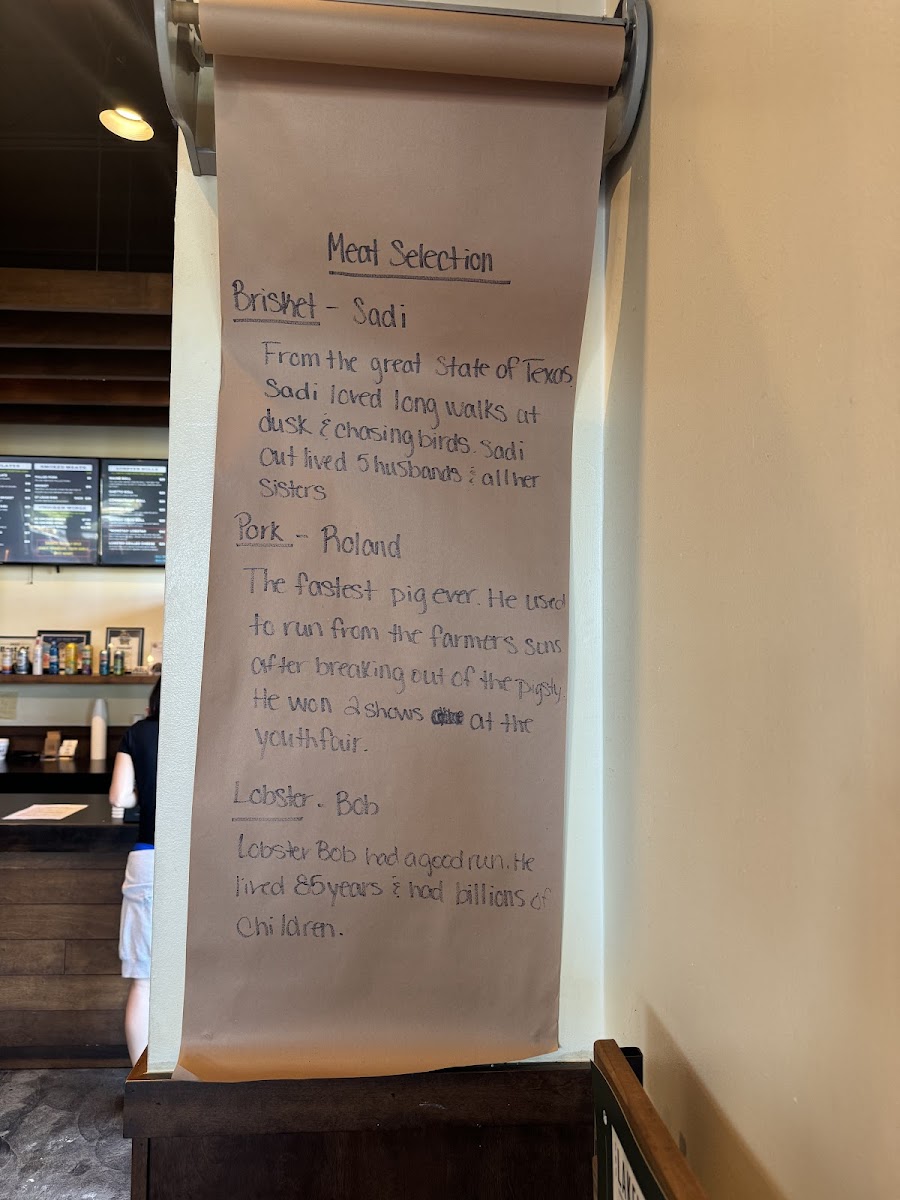 Meat Selection
Brisket - Sadi
From the great State of Texas,
Sadi loved long walks at
dusk & chasing birds. Sadi
out lived 5 husbands & all her
Sisters
Pork - Roland
The fastest pig ever. He used
to run from the farmers suns
after breaking out of the pigsty.
He won 2 shows at the
youthfair.
Lobster - Bob
Lobster Bob had a good run. He
lived 85 years & had billions of
Children.
SMOKED MEATS